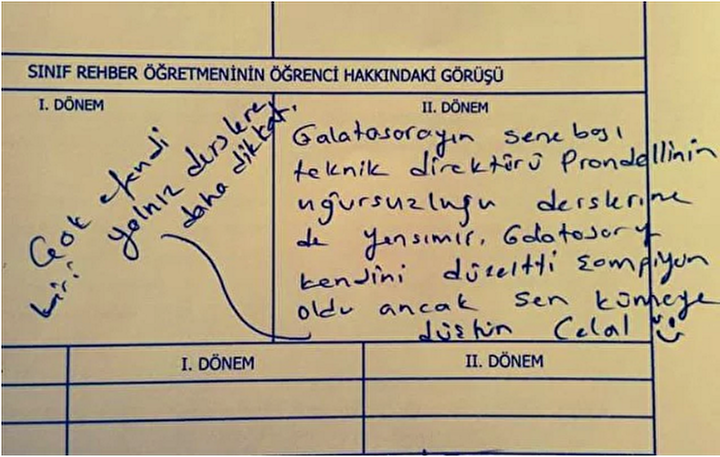 SINIF REHBER ÖĞRETMENİNİN ÖĞRENCİ HAKKINDAKİ GÖRÜŞÜ
I. DÖNEM
Çok efendi
biri. Yalnız derslere
daha dikkat.
II. DÖNEM
Galatasarayın sene başı
teknik direktörü Prandellinin
uğursuzluğu derslerine
de yansımış. Galatasaray
kendini düzeltti şampiyon
oldu ancak sen kümeye
düştün Celal
I. DÖNEM
II. DÖNEM